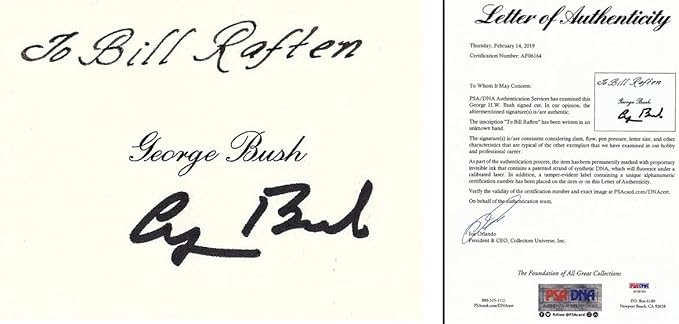 To Bill Raften
George Bush
G Bush
Letter of Authenticity
Thursday, February 14, 2019
Certification Number: AF06164
To Whom It May Concern:
PSA/DNA Authentication Services has examined this
George H.W. Bush signed cut. In our opinion, the
aforementioned signature(s) is/are authentic.
The inscription "To Bill Raften" has been written in an
unknown hand.
To Bill Raften
George Bush
G Bush
The signature(s) is/are consistent considering slant, flow, pen pressure, letter size, and other
characteristics that are typical of the other exemplars that we have examined in our hobby
and professional career.
As part of the authentication process, the item has been permanently marked with proprietary
invisible ink that contains a patented strand of synthetic DNA, which will fluoresce under a
calibrated laser. In addition, a tamper-evident label containing a unique alphanumeric
certification number has been placed on the item or on this Letter of Authenticity.
Verify the validity of the certification number and exact image at PSAcard.com/DNAcert.
On behalf of the authentication team,
Joe Orlando
President & CEO, Collectors Universe, Inc.
The Foundation of All Great Collections
800-325-1121
PSAcard.com
PSA/DNA
Follow @PSAcard
PSA/DNA
AF06164
P.O. Box 6180
Newport Beach, CA 92658